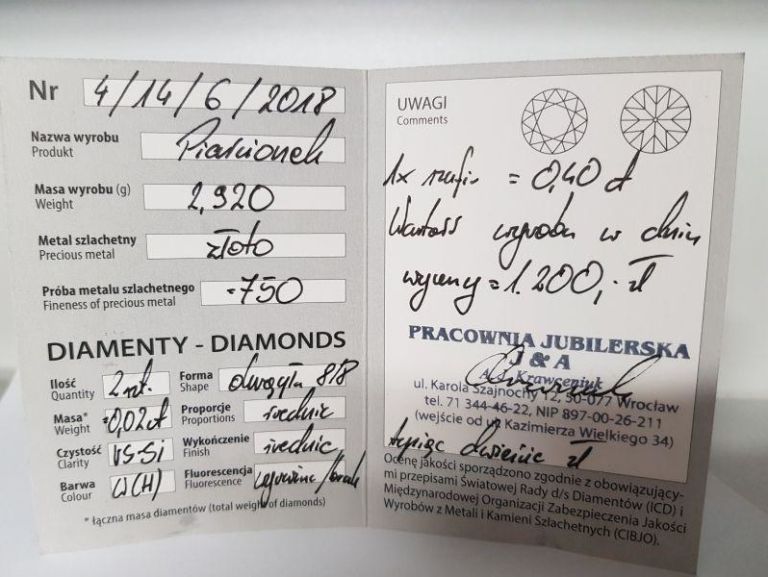 Nr 4/14/6/2018
Nazwa wyrobu Pierścionek
Produkt
Masa wyrobu (g) 2,920
Weight
Metal szlachetny złoto
Precious metal
Próba metalu szlachetnego 750
Fineness of precious metal
DIAMENTY - DIAMONDS
Ilość 2 szt.
Quantity
Forma okrągła 8/8
Shape
Masa* =0,02ct
Weight
Proporcje średnie
Proportions
Czystość VS-Si
Clarity
Wykończenie średnie
Finish
Barwa W(H)
Colour
Fluorescencja
Fluorescence
* łączna masa diamentów (total weight of diamonds)
UWAGI
Comments
1x szafir = 0,40 ct
Wartość wyrobu w dniu
wyceny = 1.200,- zł
PRACOWNIA JUBILERSKA
J & A
A. J. Krawczniuk
ul. Karola Szajnochy 12, 50-077 Wrocław
tel. 71 344-46-22, NIP 897-00-26-211
(wejście od ul. Kazimierza Wielkiego 34)
tysiąc dwieście zł
Ocenę jakości sporządzono zgodnie z obowiązujący-
mi przepisami Światowej Rady d/s Diamentów (ICD) i
Międzynarodowej Organizacji Zabezpieczenia Jakości
Wyrobów z Metali i Kamieni Szlachetnych (CIBJO).